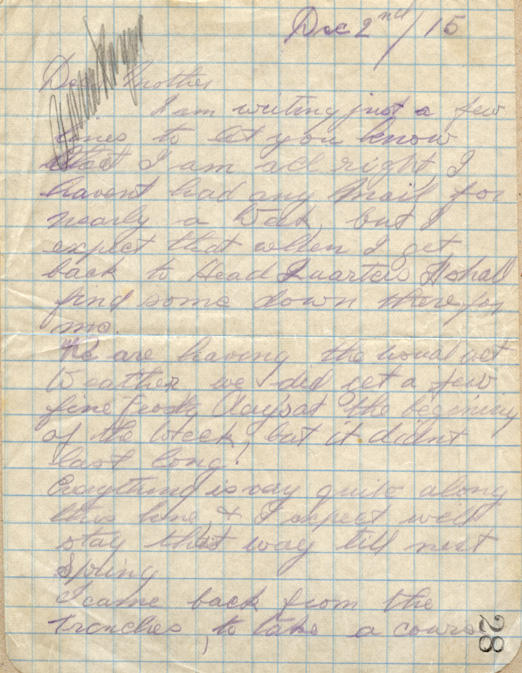 Dec 2nd/15
Dear Mother
I am writing just a few
lines to let you know
that I am all right I
havent had any mail for
nearly a Week but I
expect that when I get
back to Head Quarters I shal
find some down there for
me.
We are having the usual wet
Weather we did get a few
fine frosty Days at the begining
of the Week, but it didnt
last long.
Everything is vay quite along
this line, & I expect well
stay that way till next
Spring
I came back from the
Trenches, to take a cours
28